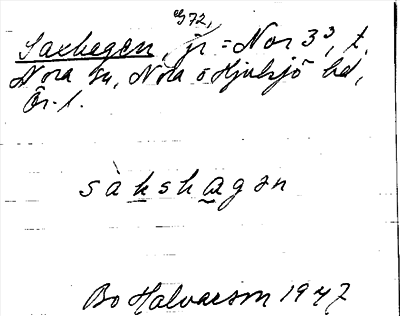 972,
Saxhagen, jr = Nor 3³, t.
Nora sn, Nora o Hjulsjö hd,
Ör. l.
sàkshagən
Bo Halvarson 1947